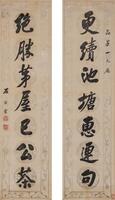 更續池塘惠連句
絕勝茅屋已公茶